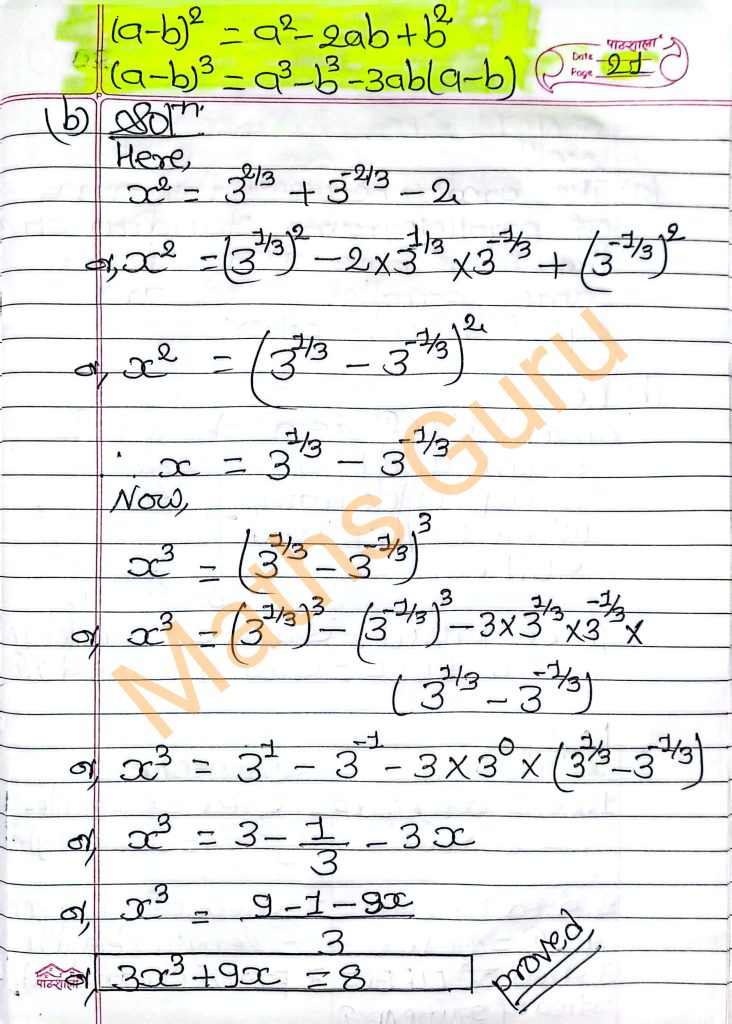 (a-b)² = a² - 2ab + b²
(a-b)³ = a³ - b³ - 3ab(a-b)
पाठशाला
Date
Page 21
(b) Solⁿ.
Here,
x² = 3^{2/3} + 3^{-2/3} - 2
or, x² = (3^{1/3})² - 2 × 3^{1/3} × 3^{-1/3} + (3^{-1/3})²
or, x² = (3^{1/3} - 3^{-1/3})²
∴ x = 3^{1/3} - 3^{-1/3}
Now,
x³ = (3^{1/3} - 3^{-1/3})³
or, x³ = (3^{1/3})³ - (3^{-1/3})³ - 3 × 3^{1/3} × 3^{-1/3} ×
(3^{1/3} - 3^{-1/3})
or, x³ = 3¹ - 3^{-1} - 3 × 3⁰ × (3^{1/3} - 3^{-1/3})
or, x³ = 3 - 1/3 - 3x
or, x³ = (9 - 1 - 9x)/3
or, 3x³ + 9x = 8
proved
पाठशाला
Maths Guru